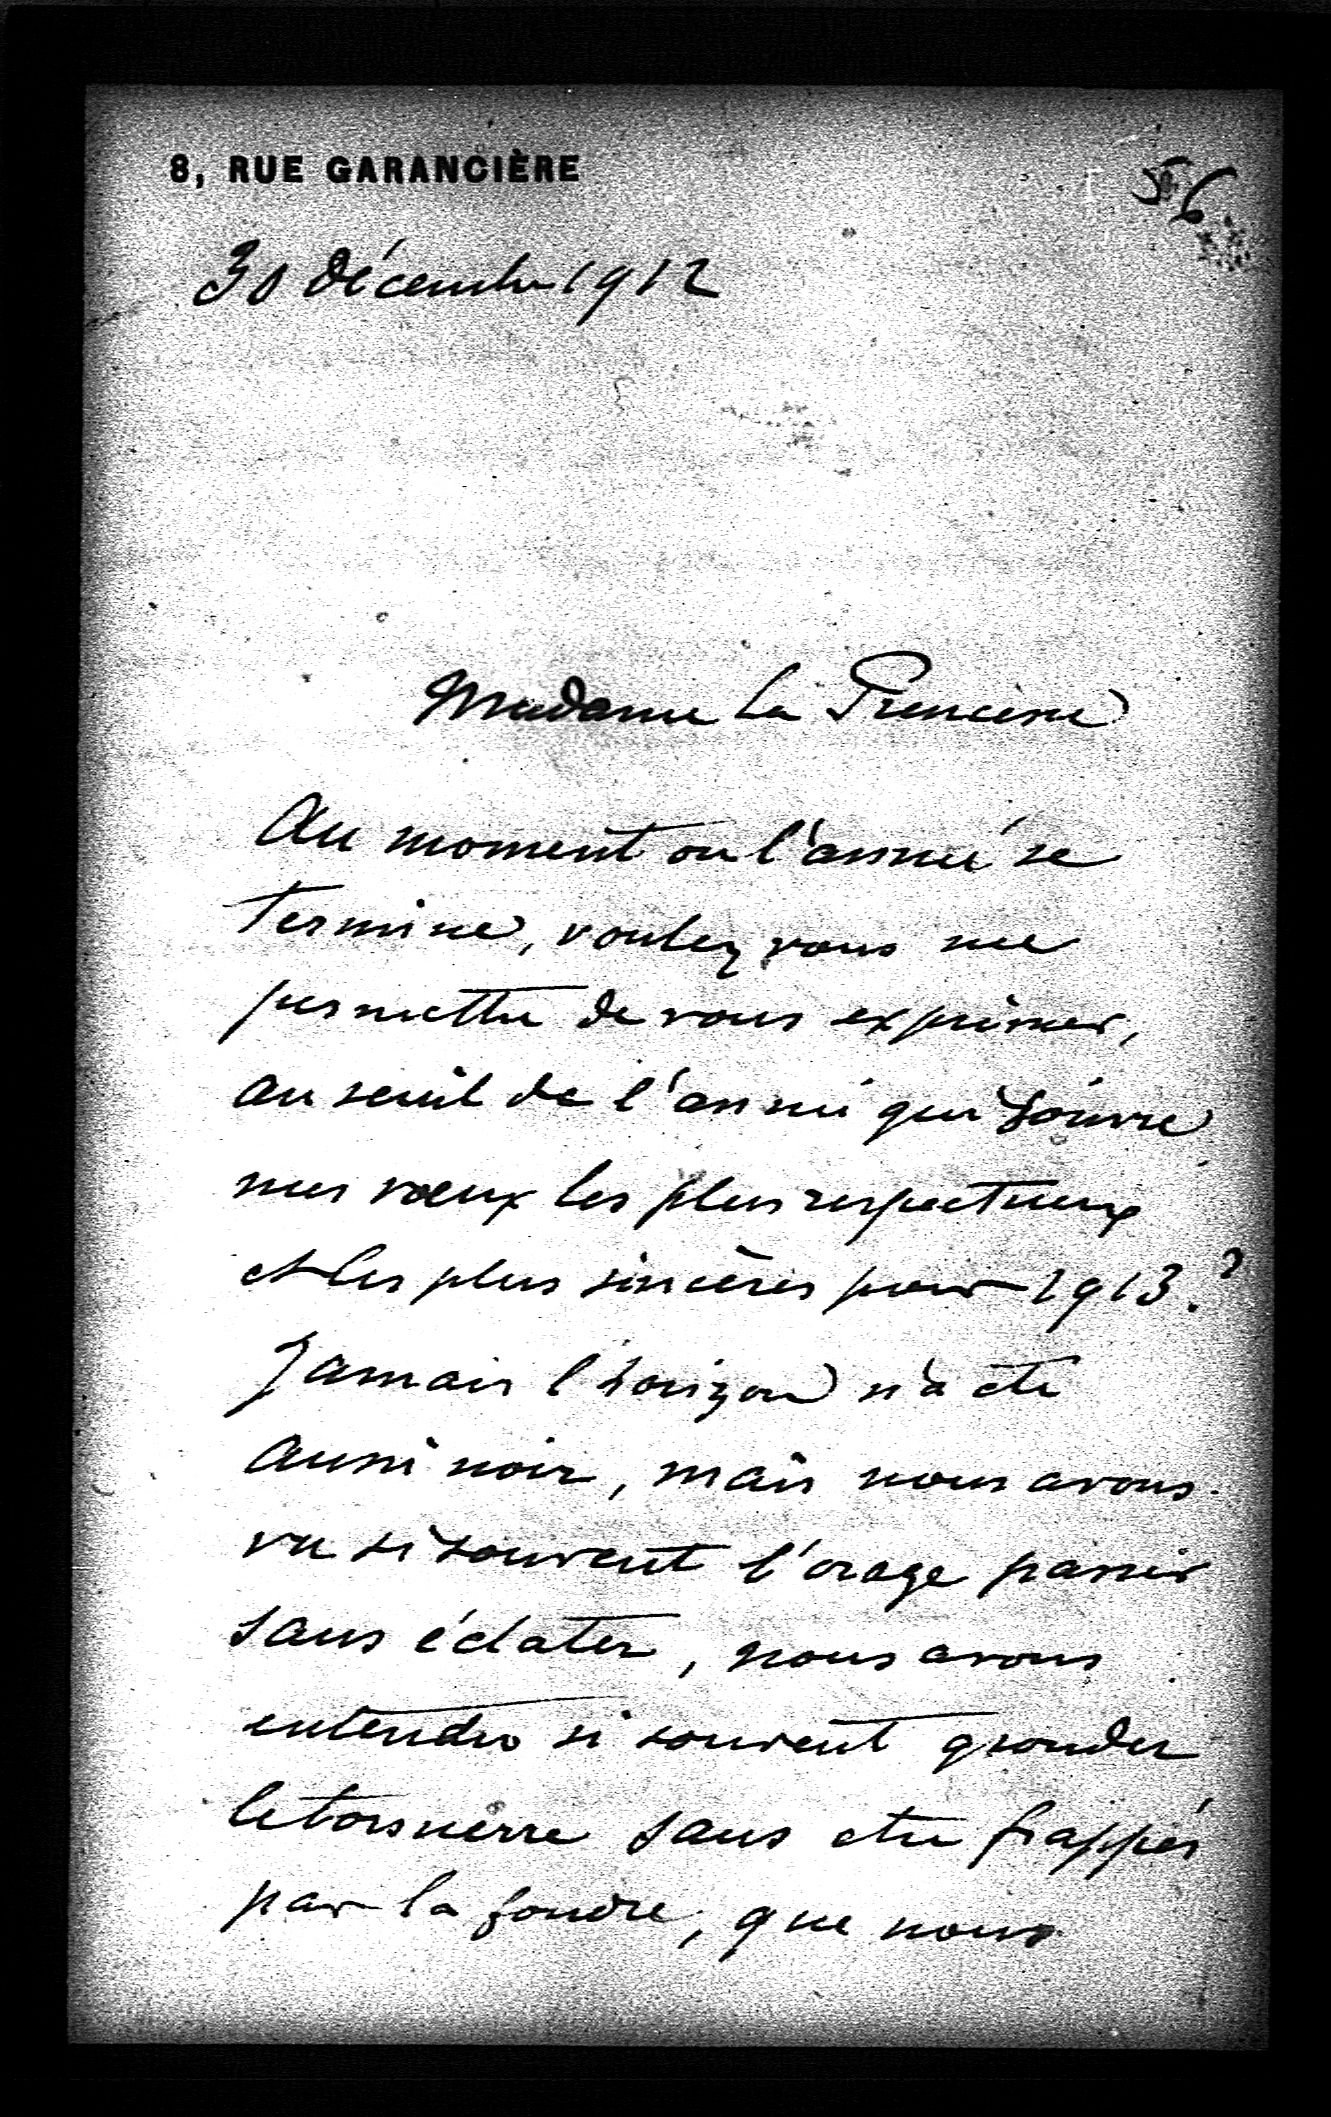 8, RUE GARANCIÈRE
56
30 décembre 1912
Madame la Princesse
Au moment ou l'année se
termine, voulez vous me
permettre de vous exprimer,
au seuil de l'année qui s'ouvre
mes vœux les plus respectueux
et les plus sincères pour 1913 ?
Jamais l'horizon n'a été
aussi noir, mais nous avons
vu si souvent l'orage passer
sans éclater, nous avons
entendu si souvent gronder
le tonnerre sans etre frappés
par la foudre, que nous